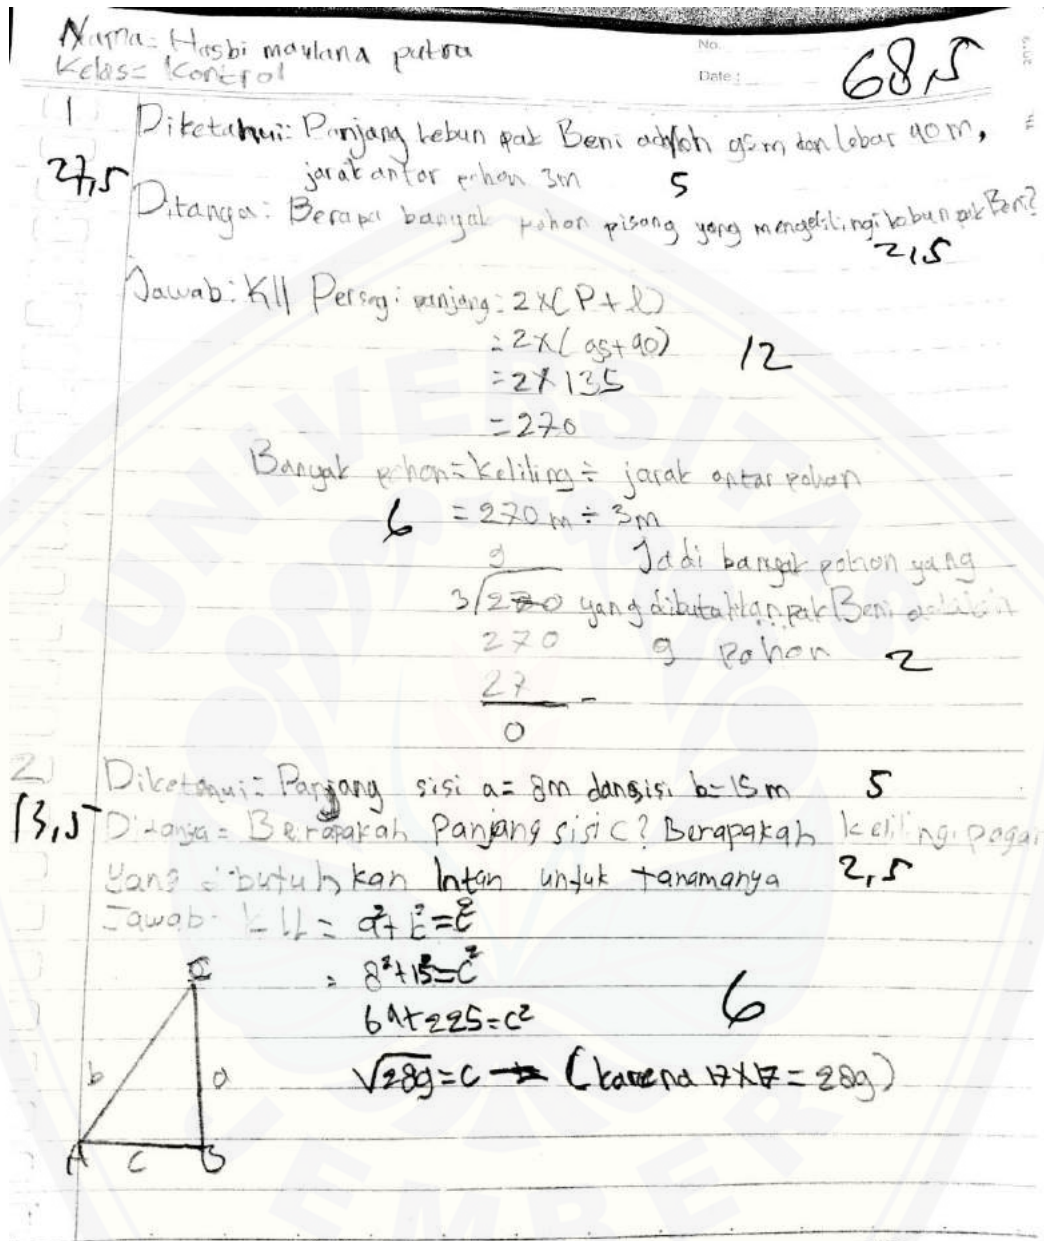 Nama= Hasbi maulana putra
Kelas= Kontrol
No.
Date :
68,5
1
27,5
Diketahui: Panjang kebun pak Beni adalah 95m dan lebar 40m,
jarak antar pohon 3m
5
Ditanya: Berapa banyak pohon pisang yang mengelilingi kebun pak Beni?
2,5
Jawab: Kll Persegi panjang: 2x(P+l)
= 2x(95+40)
12
= 2x135
= 270
Banyak pohon= Keliling ÷ jarak antar pohon
6
= 270 m ÷ 3m
9
Jadi banyak pohon yang
3/270 yang dibutuhkan pak Beni adalah
270
9 Pohon
2
27 -
0
2
13,5
Diketahui= Panjang sisi a= 8m dan sisi b= 15m
5
Ditanya= Berapakah Panjang sisi C? Berapakah keliling pagar
yang dibutuhkan Intan untuk tanamanya
2,5
Jawab= Kll = a²+b²=c²
= 8²+15²=C²
6
64+225=c²
√289=C (karena 17x17=289)
b
a
A
C
B
UNIVERSITAS
JEMBER